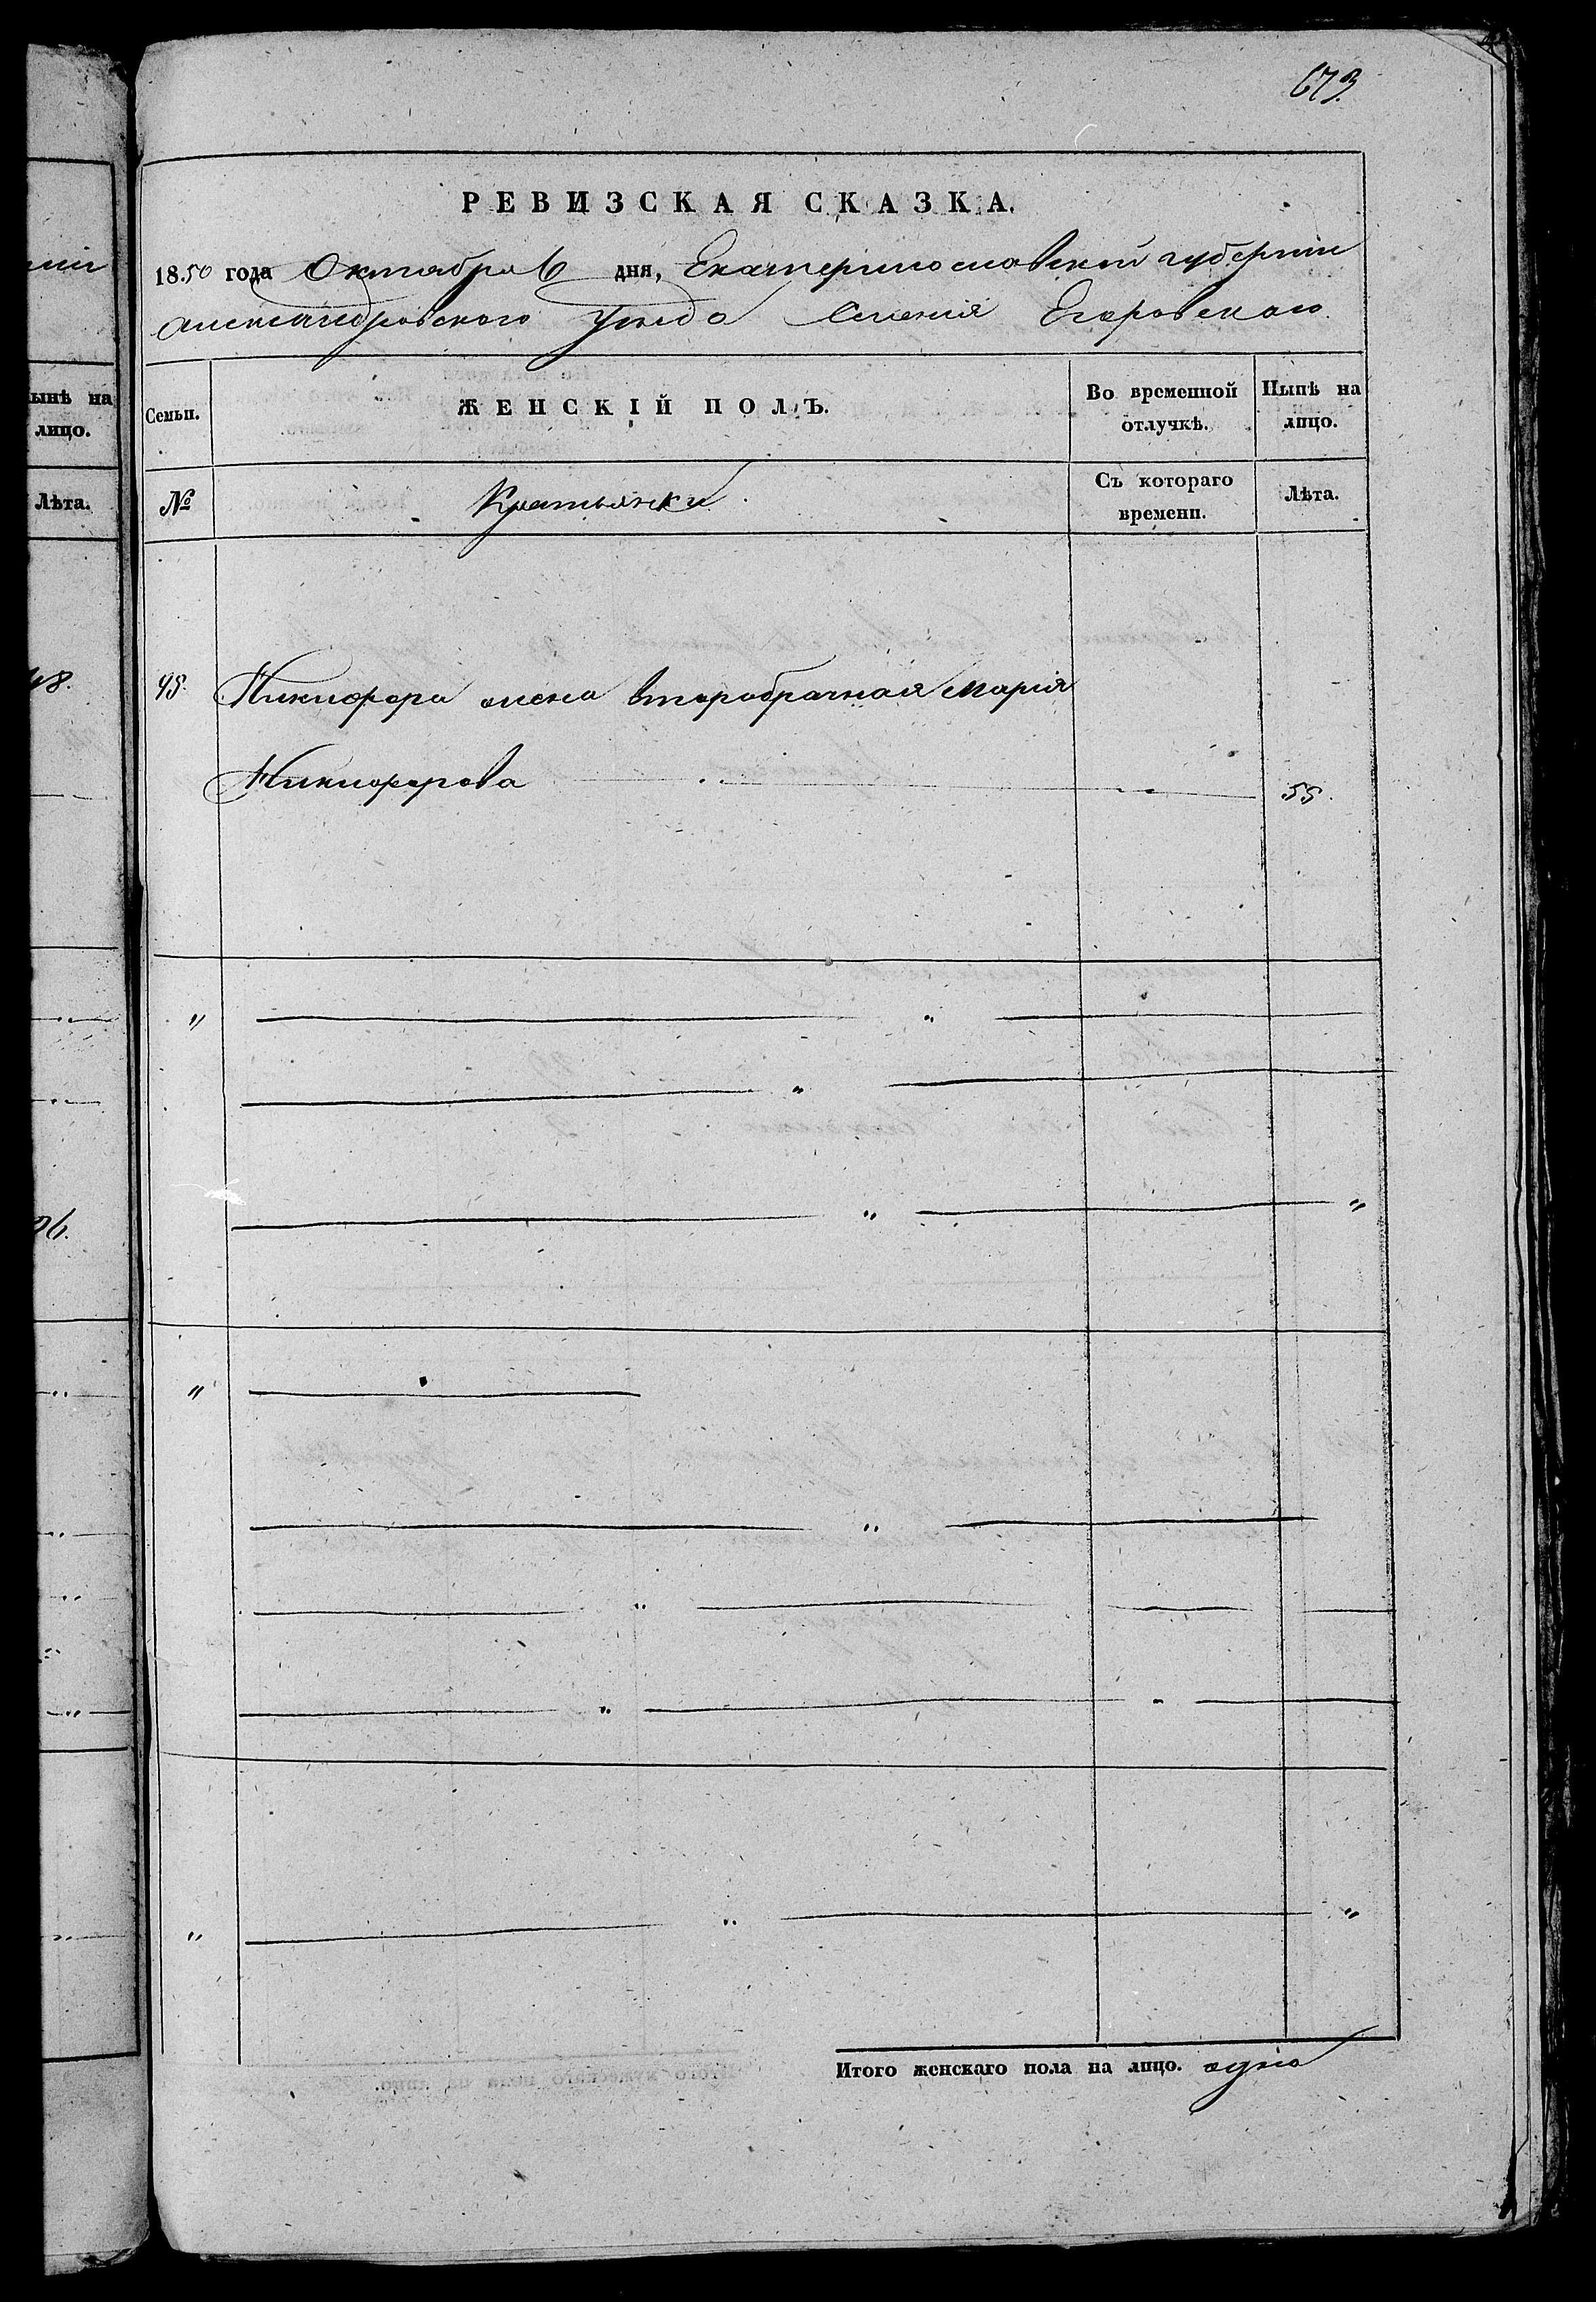 673.
РЕВИЗСКАЯ СКАЗКА.
1850 года Октября 6 дня, Екатеринославской губернии
Александровского Уезда Селения Егоровскаго.
Семьи.
ЖЕНСКІЙ ПОЛЪ.
Во временной отлучкѣ.
Нынѣ на лицо.
№
Крестьянки
Съ котораго времени.
Лѣта.
95. Никифора жена второбрачная Марія
Никифорова 55.
Итого женскаго пола на лицо. одна
ынѣ на
лицо.
Лѣта.
48.